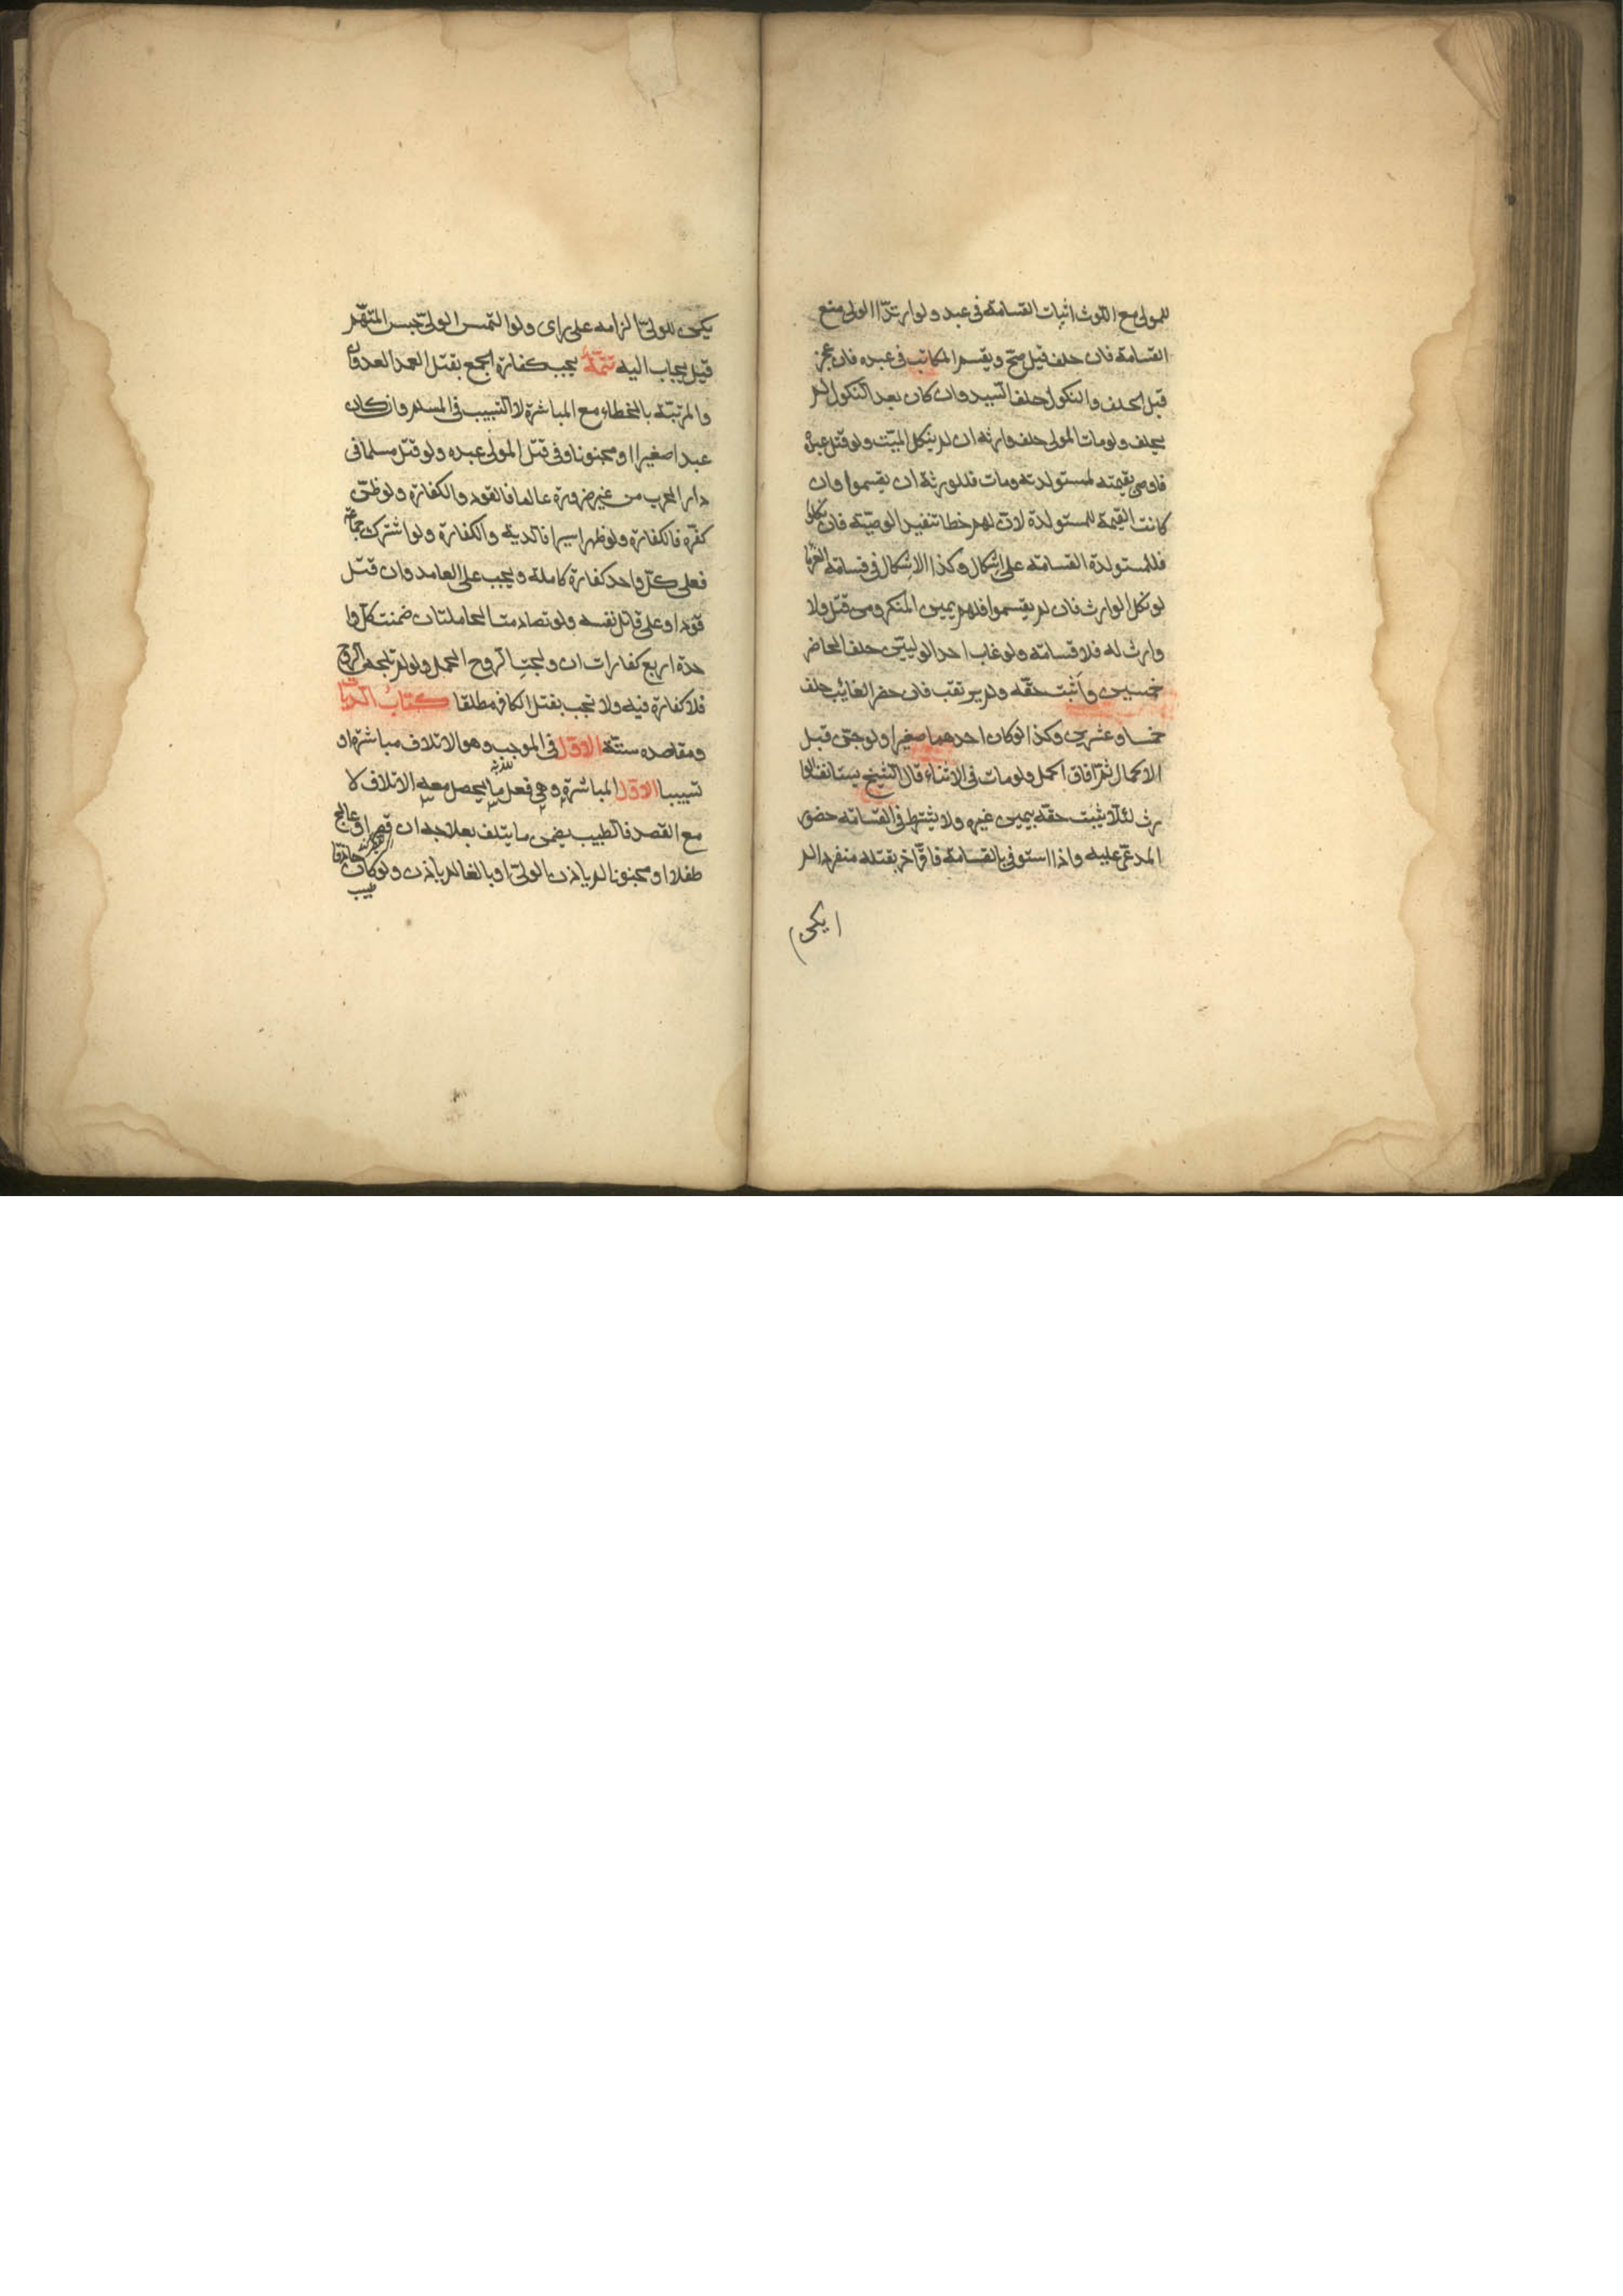 للمولى مع اللوث اثبات القسامة فى عبد ولو ارتدّ االولى منع
القسامة فان حلف قيل صحّ ويقسم المكاتب فى عبده فان عجز
قبل الحلف والنكول حلف السيد وان كان بعد النكول لم
يحلف ولو مات المولى حلف وارثه ان لم ينكل الميّت ولو قتل عبده
فاوصى بقيمته لمستولدته ومات فللورثة ان يقسموا وان
كانت القيمة للمستولدة لانّ لهم خطا تنفيذ الوصيّة فان نكلوا
فللمستولدة القسامة على اشكال وكذا الاشكال فى قسامة الغرما
لو نكل الوارث فان لم يقسموا فلهم يمين المنكر ومن قتل ولا
وارث له فلا قسامة ولو غاب احد الوليّين حلف الحاضر
خمسين واثبت حقّه ولم يرتقب فان حضر الغائب حلف
خمسا وعشرين وكذا لوكان احدهما صغيرا ولو جنّ قبل
الاكمال ثمّ افاق اكمل ولو مات فى الاثناء قال الشيخ يستانف الوا
رث لئلّا يثبت حقّه بيمين غيره ولا يشترط فى القسامة حضور
المدعى عليه واذا استوفى بالقسامة فاقرّ اخر بقتله منفردا لم
(يكن)
يكن للولىّ الزامه على راى ولو التمس الولىّ حبس المتّهم
قيل يجاب اليه تتمّة يجب كفارة الجمع بقتل العمد العدوان
والمرتبّة بالخطاء مع المباشرة لا التسبيب فى المسلم وان كان
عبدا صغيرا او مجنونا وفى قتل المولى عبده ولو قتل مسلما فى
دار الحرب من غير ضرورة عالما فالقود والكفارة ولو ظنّ
كفره فالكفارة ولو ظهر اسيرا فالدية والكفارة ولو اشترك جماعة
فعلى كلّ واحد كفارة كاملة ويجب على العامد وان قتل
قودا وعلى قاتل نفسه ولو تصادمت الحاملتان ضمنت كلّ وا
حدة اربع كفارات ان ولجت الروح الحمل ولو لم تلجه الروح
فلا كفارة فيه ولا تجب بقتل الكافر مطلقا كتاب الديات
ومقاصده ستّة الاوّل فى الموجب وهو الاتلاف مباشرة او
تسبيبا الاوّل المباشرة وهى فعل ما يحصل معه الاتلاف لا
مع القصد فالطبيب يضمن ما يتلف بعلاجه ان قصر او عالج
طفلا او مجنونا لم ياذن الولىّ او بالغا لم ياذن ولو كان حاذقا
طبيب